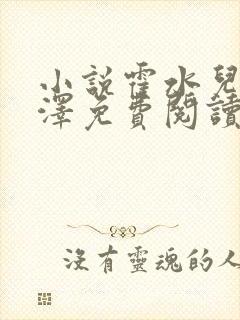 小說霍水兒
澤免費閱讀
沒有靈魂的人